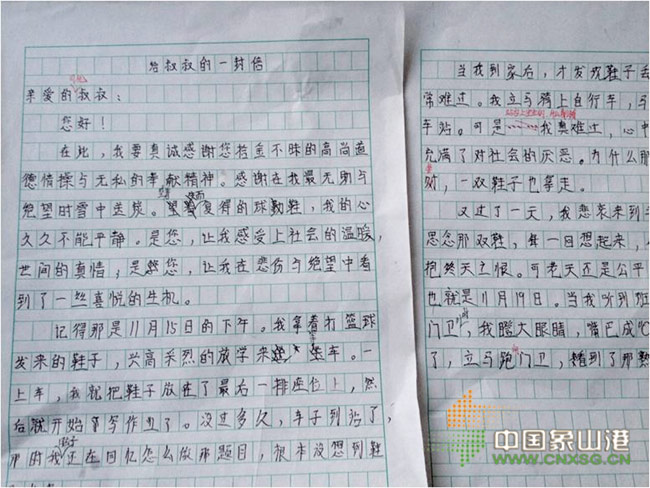 给叔叔的一封信
亲爱的叔叔：
您好！
在此，我要真诚感谢您拾金不昧的高尚道
德情操与无私的奉献精神。感谢在我最无助与
绝望时雪中送炭。望着复得的球鞋，我的心
久久不能平静。是您，让我感受上社会的温暖，
世间的真情，是您，让我在悲伤与绝望中看
到了一丝喜悦的生机。
记得那是11月15日的下午。我拿着打篮球
发来的鞋子，兴高采烈的放学来坐车。一
上车，我就把鞋子放在了最后一排座位上，然
后就开始写作业了。没过多久，车子到站了，
我还在回忆怎么做那题目，根本没想到鞋
当我到家后，才发现鞋子
常难过。我立马骑上自行车，
车站。可是……我真难过，心中
充满了对社会的厌恶。为什么那
财，一双鞋子也拿走。
又过了一天，我悲哀来到
思念那双鞋，每一日想起来，
抱终天之恨。可老天还是公平
也就是11月19日。当我听到班
门卫，我瞪大眼睛，嘴巴成
了，立马跑向门卫，接到了那
中国象山港
WWW.CNXSG.CN